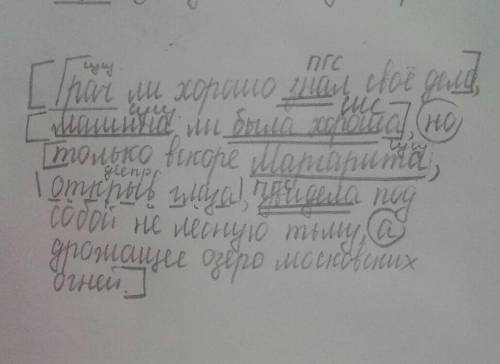 сущ ПГС
[Грач ли хорошо знал своё дело,
сущ СИС
[машина ли была хороша], но
[только вскоре Маргарита,
деепр. сущ
|открыв глаза|, увидела под
ПГС
собой не лесную тьму, а
дрожащее озеро московских
огней.]